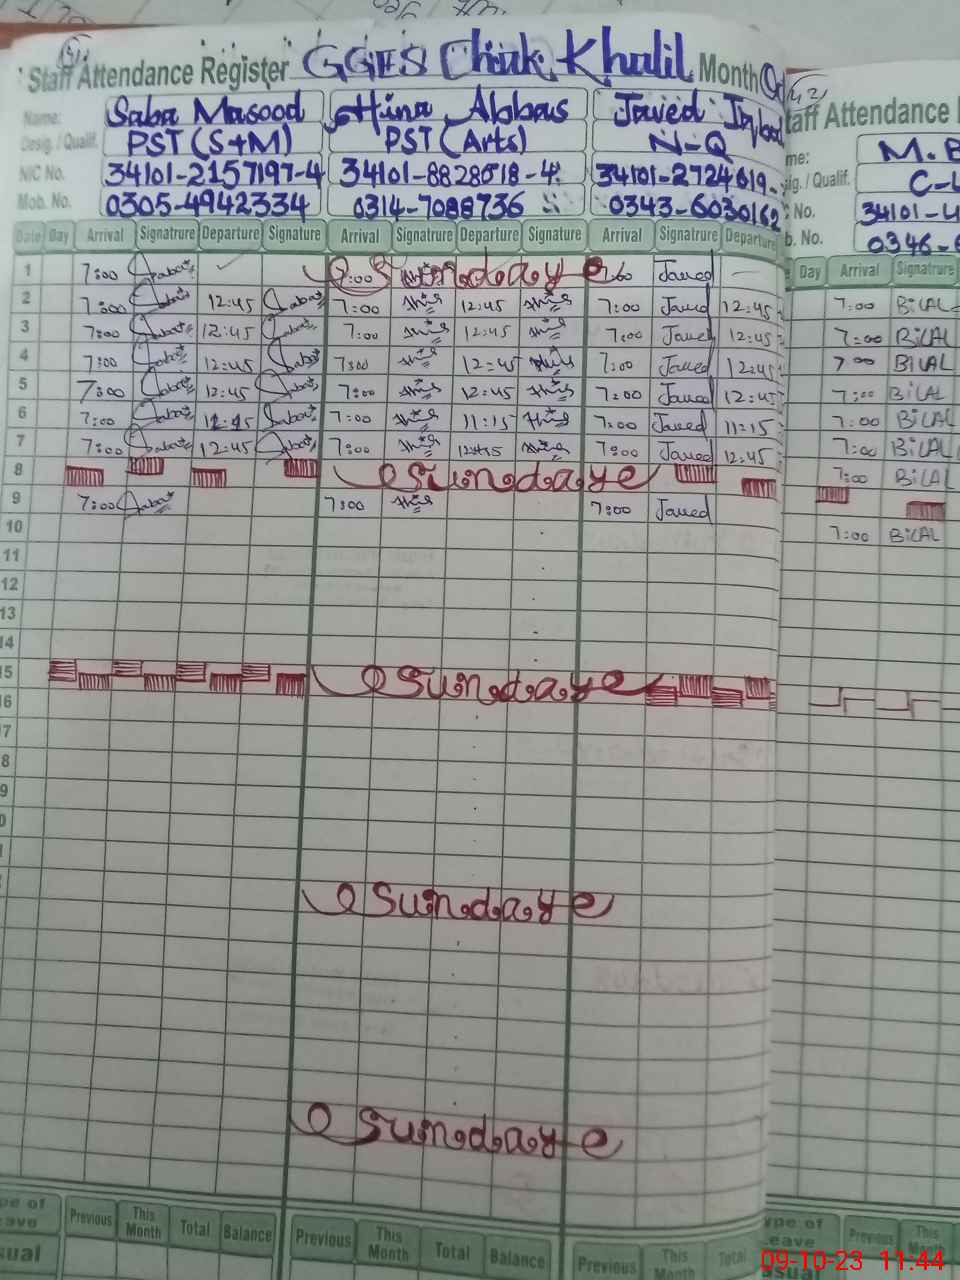 Staff Attendance Register GGES Chak Khalil Month
Name: Saba Masood Hina Abbas Javed Iqbal
Desig. / Qualif. PST (S+M) PST (Arts) N-Q
NIC No. 34101-2157197-4 34101-8828518-4 34101-2724619-
Mob. No. 0305-4942334 0314-7088736 0343-6030162
Date Day Arrival Signatrure Departure Signature Arrival Signatrure Departure Signature Arrival Signatrure Departure
1 7:00 Saba Sunday 7:00 Javed
2 7:00 Saba 12:45 Saba 7:00 Hina 12:45 Hina 7:00 Javed 12:45
3 7:00 Saba 12:45 Saba 7:00 Hina 12:45 Hina 7:00 Javed 12:45
4 7:00 Saba 12:45 Saba 7:00 Hina 12:45 Hina 7:00 Javed 12:45
5 7:00 Saba 12:45 Saba 7:00 Hina 12:45 Hina 7:00 Javed 12:45
6 7:00 Saba Saba 7:00 Hina 11:15 Hina 7:00 Javed 11:15
7 7:00 Saba 12:45 Saba 7:00 Hina 12:45 Hina 7:00 Javed 12:45
8 Sunday
9 7:00 Saba 7:00 Hina 7:00 Javed
10
11
12
13
14
15 Sunday
6
7
8
9
0
Sunday
Sunday
Previous This Month Total Balance Previous This Month Total Balance Previous This Month Total
42
taff Attendance
me: M.B
sig. / Qualif. C-
No. 34101-4
b. No. 0346-
Day Arrival Signatrure
7:00 BILAL
7:00 BILAL
7:00 BILAL
7:00 BILAL
7:00 BILAL
7:00 BILAL
7:00 BILAL
7:00 BILAL
ype of Leave Previous This Month
09-10-23 11:44